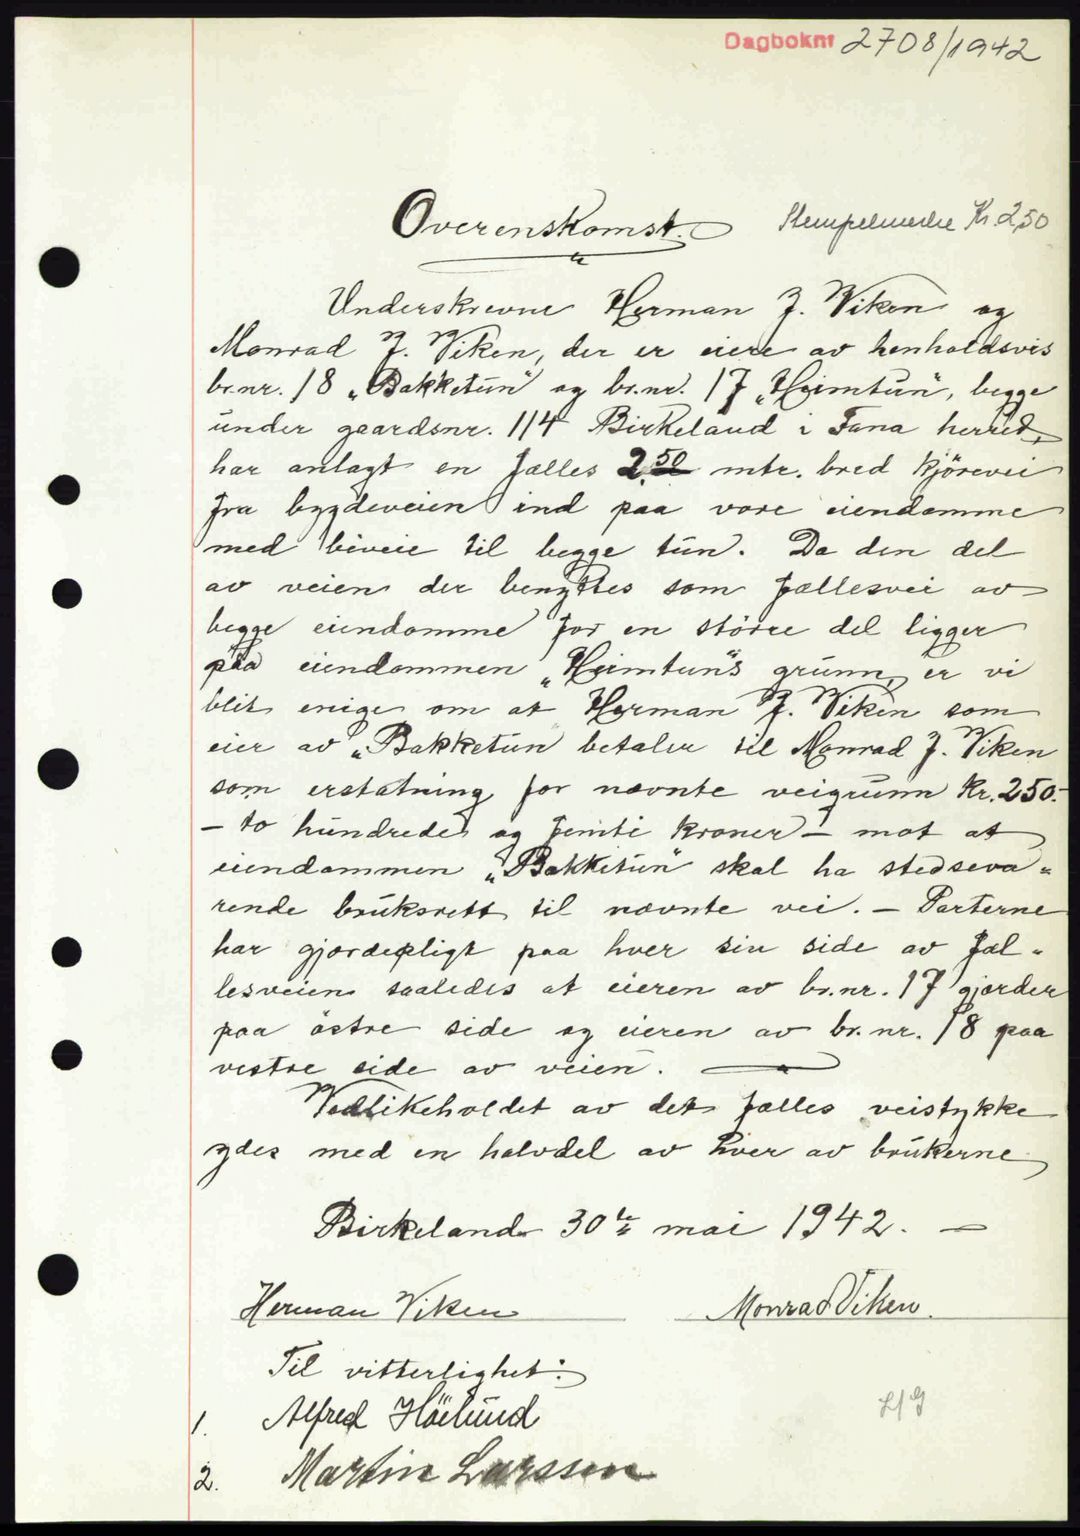 Dagboknr 2708/1942
Overenskomst. Stempelmerke Kr. 2,50
Underskrevne Herman J. Viken og
Monrad J. Viken, der er eiere av henholdsvis
br.nr. 18 „Bakketun" og br.nr. 17 „Heimtun", begge
under gaardsnr. 114 Birkeland i Fana herred,
har anlagt en fælles 2.50 mtr. bred kjörevei
fra bygdeveien ind paa vore eiendomme
med biveie til begge tun. Da den del
av veien der benyttes som fællesvei av
begge eiendomme for en större del ligger
paa eiendommen „Heimtun"s grunn, er vi
blit enige om at Herman J. Viken som
eier av „Bakketun" betaler til Monrad J. Viken
som erstatning for nævnte veigrunn Kr. 250.-
- to hundrede og femti kroner - mot at
eiendommen „Bakketun" skal ha stedseva-
rende bruksrett til nævnte vei. - Parterne
har gjærdepligt paa hver sin side av fæl-
lesveien saaledes at eieren av br.nr. 17 gjærder
paa östre side og eieren av br.nr. 18 paa
vestre side av veien.
Vedlikeholdet av det fælles veistykke
ydes med en halvdel av hver av brukerne,
Birkeland 30te mai 1942. -
Herman Viken Monrad Viken.
Til vitterlighet:
1. Alfred Höilund
2. Martin Larssen